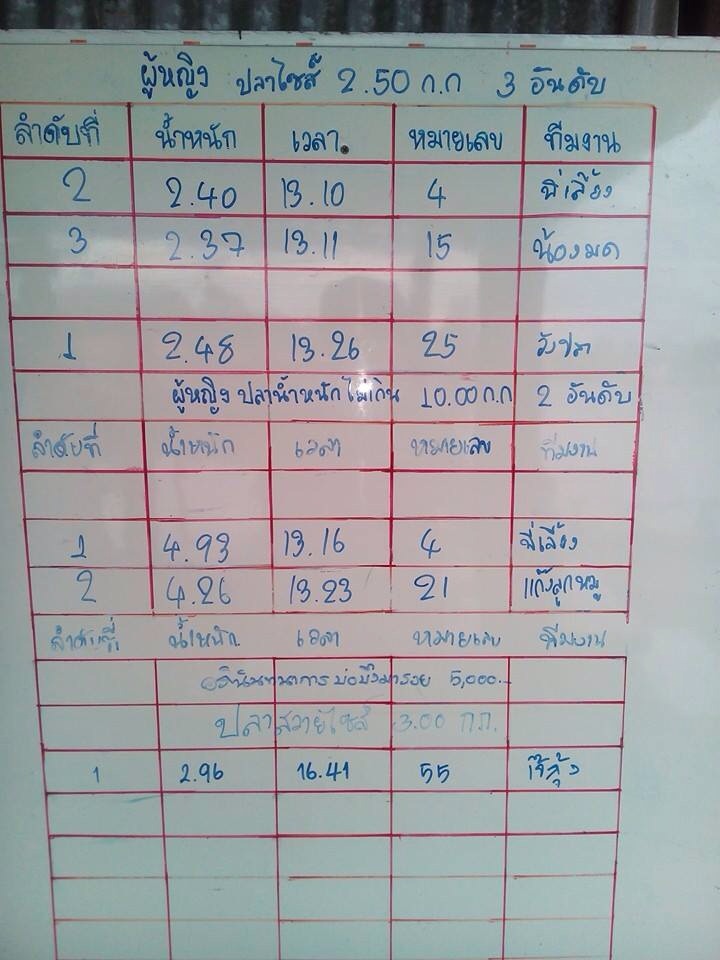 ผู้หญิง ปลาไซส์ 2.50 ก.ก 3 อันดับ
ลำดับที่ น้ำหนัก เวลา. หมายเลข ทีมงาน
2 2.40 13.10 4 พี่เลี้ยง
3 2.37 13.11 15 น้องมด
1 2.48 13.26 25 วังปลา
ผู้หญิง ปลาน้ำหนักไม่เกิน 10.00 ก.ก 2 อันดับ
ลำดับที่ น้ำหนัก เวลา หมายเลข ทีมงาน
1 4.93 13.16 4 พี่เลี้ยง
2 4.26 13.23 21 แก๊งลูกหมู
ลำดับที่ น้ำหนัก เวลา หมายเลข ทีมงาน
บ่อบึงมารวย 5,000.-
ปลาสวายไซส์ 3.00 ก.ก.
1 2.96 16.41 55 เจ๊สุ้ง